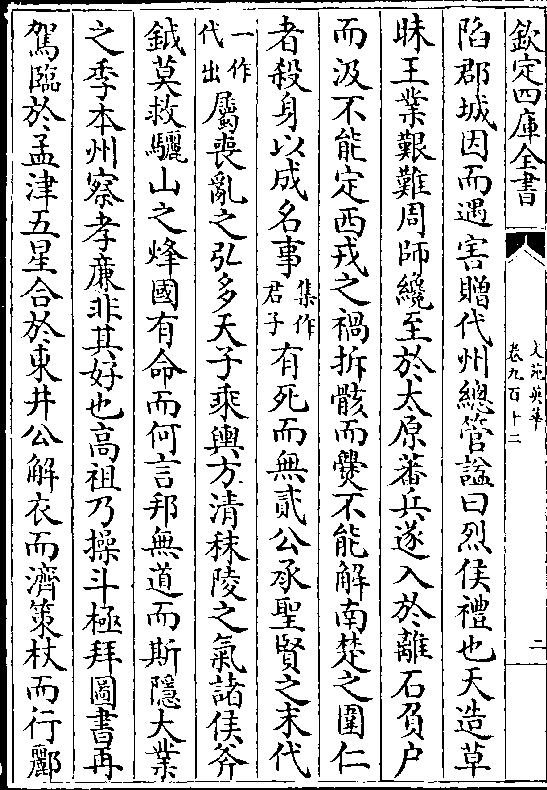 欽定四庫全書
文苑英華
卷九百十二
二
陷郡城因而遇害贈代州總管諡曰烈侯禮也天造草
昧王業艱難周師纔至於太原蕃兵遂入於離石負户
而汲不能定西戎之禍拆骸而㸑不能解南楚之圍仁
者殺身以成名事集作君子有死而無貳公承聖賢之末代
一作代出屬喪亂之弘多天子乘輿方清秣陵之氣諸侯斧
鉞莫救驪山之烽國有命而何言邦無道而斯隱大業
之季本州察孝廉非其好也高祖乃操斗極拜圖書再
駕臨於孟津五星合於東井公解衣而濟策杖而行酈